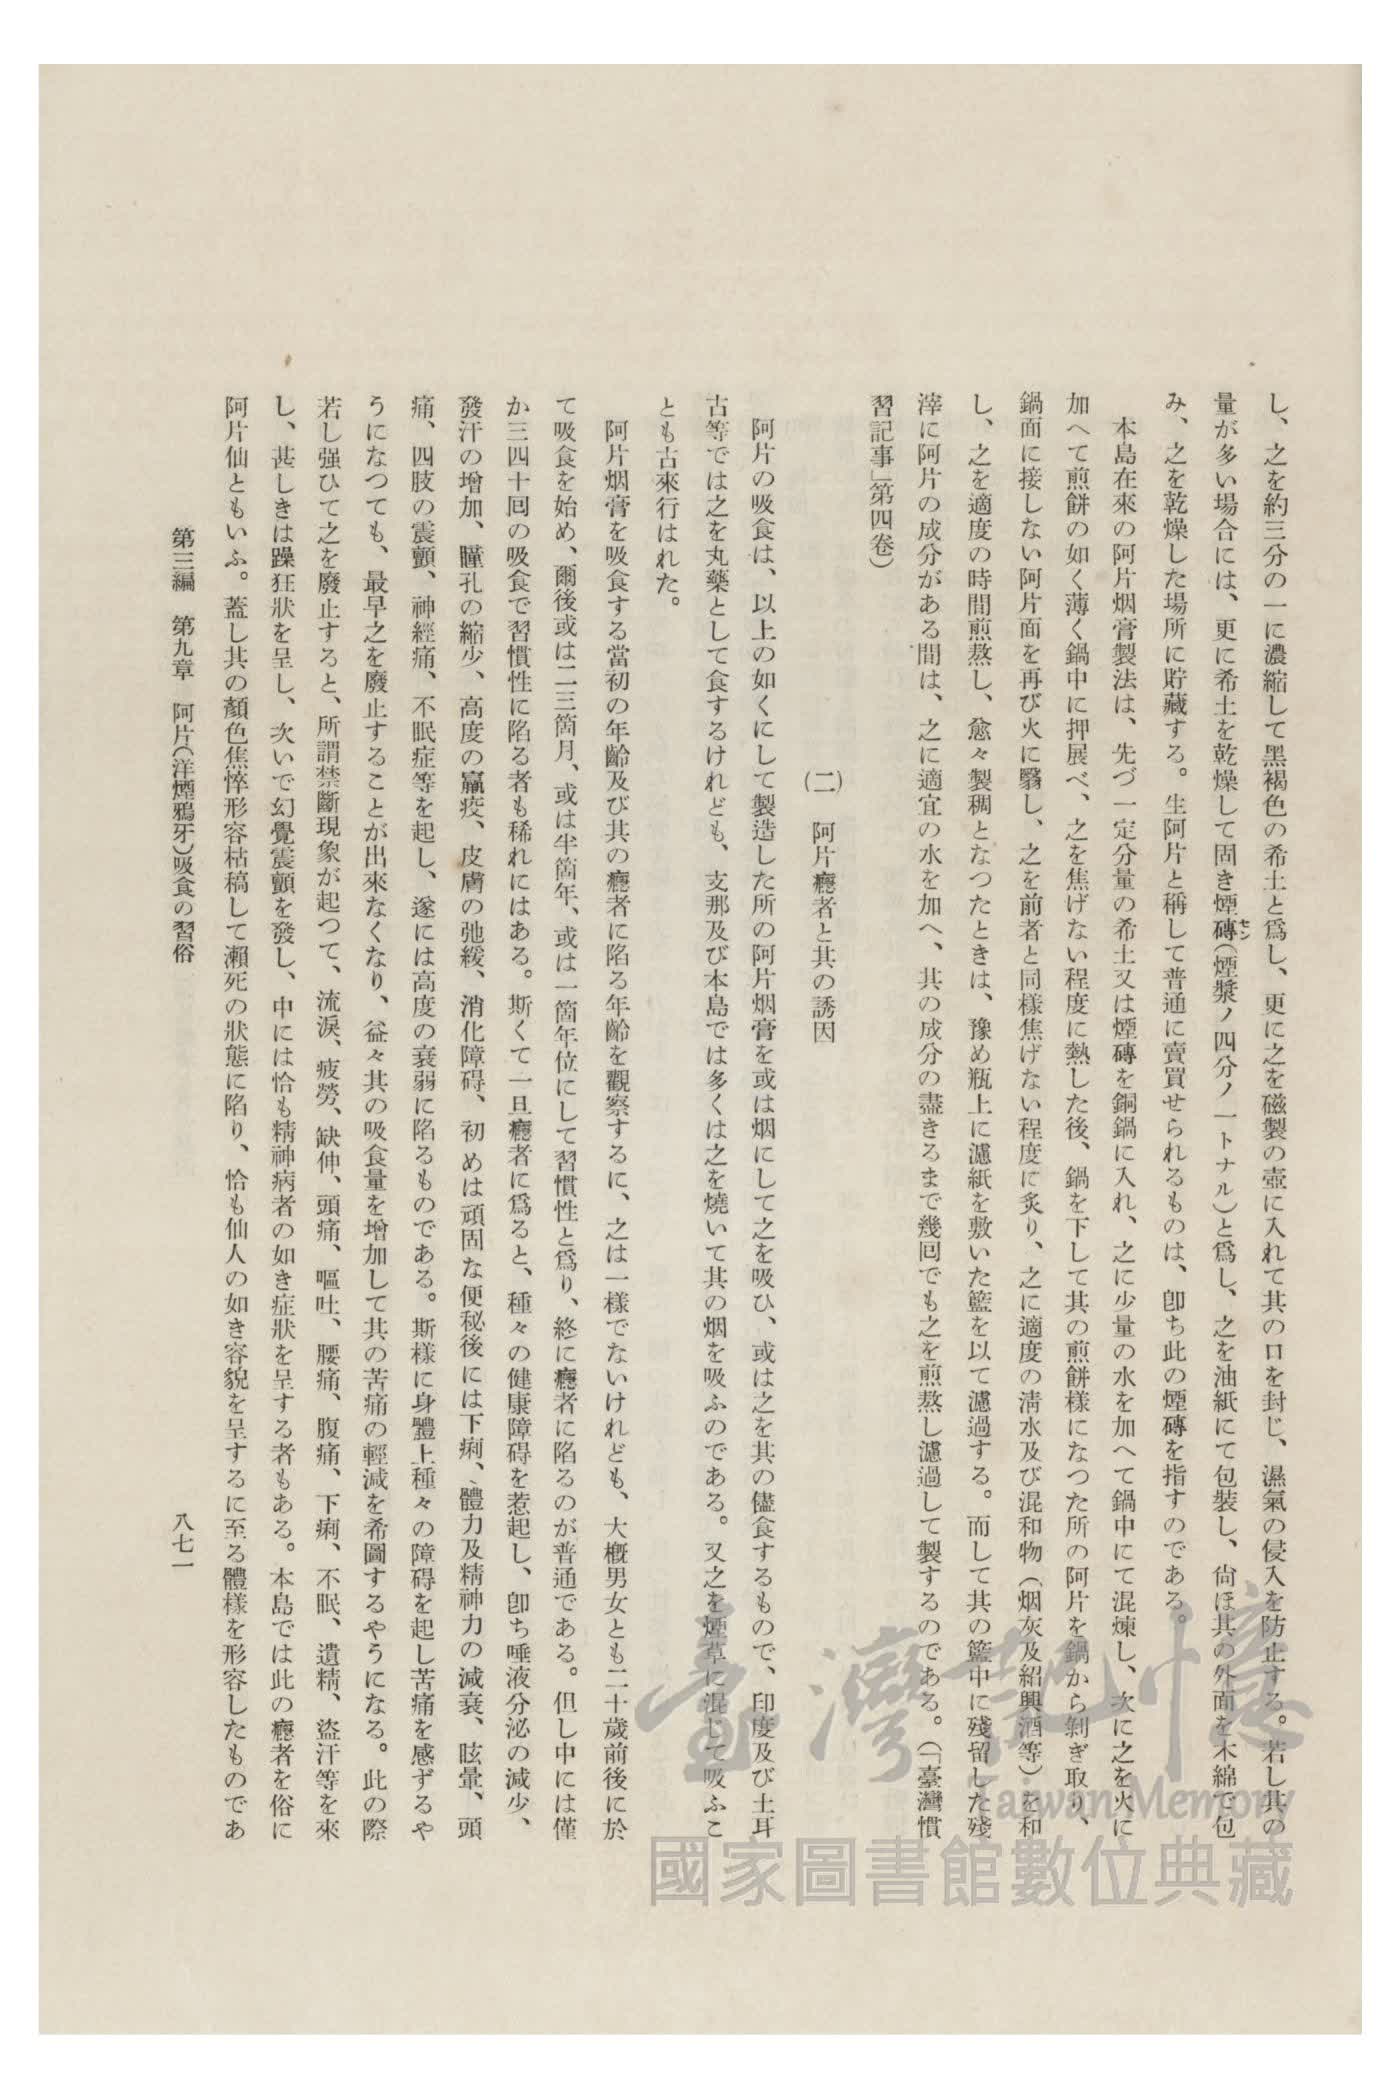 し、之を約三分の一に濃縮して黑褐色の希土と爲し、更に之を磁製の壺に入れて其の口を封じ、濕氣の侵入を防止する。若し其の
量が多い場合には、更に希土を乾燥して固き煙磚(煙漿ノ四分ノ一トナル)と爲し、之を油紙にて包裝し、尙ほ其の外面を木綿で包
モン
み、之を乾燥した場所に貯藏する。生阿片と稱して普通に賣買せられるものは、卽ち此の煙磚を指すのである。
本島在來の阿片烟膏製法は、先づ一定分量の希土又は煙磚を銅鍋に入れ、之に少量の水を加へて鍋中にて混煉し、次に之を火に
加へて煎餅の如く薄く鍋中に押展べ、之を焦げない程度に熱した後、鍋を下して其の煎餅樣になつた所の阿片を鍋から剝ぎ取り、
鍋面に接しない阿片面を再び火に翳し、之を前者と同樣焦げない程度に炙り、之に適度の淸水及び混和物(烟灰及紹興酒等)を和
し、之を適度の時間煎熬し、愈々製稠となつたときは、豫め瓶上に濾紙を敷いた籃を以て濾過する。而して其の籃中に殘留した殘
滓に阿片の成分がある間は、之に適宜の水を加へ、其の成分の盡きるまで幾回でも之を煎熬し濾過して製するのである。(「臺灣慣
習記事」第四卷)
(二) 阿片癮者と其の誘因
阿片の吸食は、以上の如くにして製造した所の阿片烟膏を或は烟にして之を吸ひ、或は之を其の儘食するもので、印度及び土耳
古等では之を丸藥として食するけれども、支那及び本島では多くは之を燒いて其の烟を吸ふのである。又之を煙草に混じて吸ふこ
とも古來行はれた。
阿片烟膏を吸食する當初の年齡及び其の癮者に陷る年齡を觀察するに、之は一樣でないけれども、大槪男女とも二十歲前後に於
て吸食を始め、爾後或は二三箇月、或は半箇年、或は一箇年位にして習慣性と爲り、終に癮者に陷るのが普通である。但し中には僅
か三四十回の吸食で習慣性に陷る者も稀れにはある。斯くて一旦癮者に爲ると、種々の健康障碍を惹起し、卽ち唾液分泌の減少、
發汗の增加、瞳孔の縮少、高度の羸疫、皮膚の弛緩、消化障碍、初めは頑固な便秘後には下痢、體力及精神力の減衰、眩暈、頭
痛、四肢の震顫、神經痛、不眠症等を起し、遂には高度の衰弱に陷るものである。斯樣に身體上種々の障碍を起し苦痛を感ずるや
うになつても、最早之を廢止することが出來なくなり、益々其の吸食量を增加して其の苦痛の輕減を希圖するやうになる。此の際
若し强ひて之を廢止すると、所謂禁斷現象が起つて、流淚、疲勞、缺伸、頭痛、嘔吐、腰痛、腹痛、下痢、不眠、遺精、盜汗等を來
し、甚しきは躁狂狀を呈し、次いで幻覺震顫を發し、中には恰も精神病者の如き症狀を呈する者もある。本島では此の癮者を俗に
阿片仙ともいふ。蓋し其の顏色焦悴形容枯稿して瀕死の狀態に陷り、恰も仙人の如き容貌を呈するに至る體樣を形容したものであ
第三編 第九章 阿片(洋煙鴉牙)吸食の習俗
八七一
臺灣記憶
Taiwan Memory
國家圖書館數位典藏